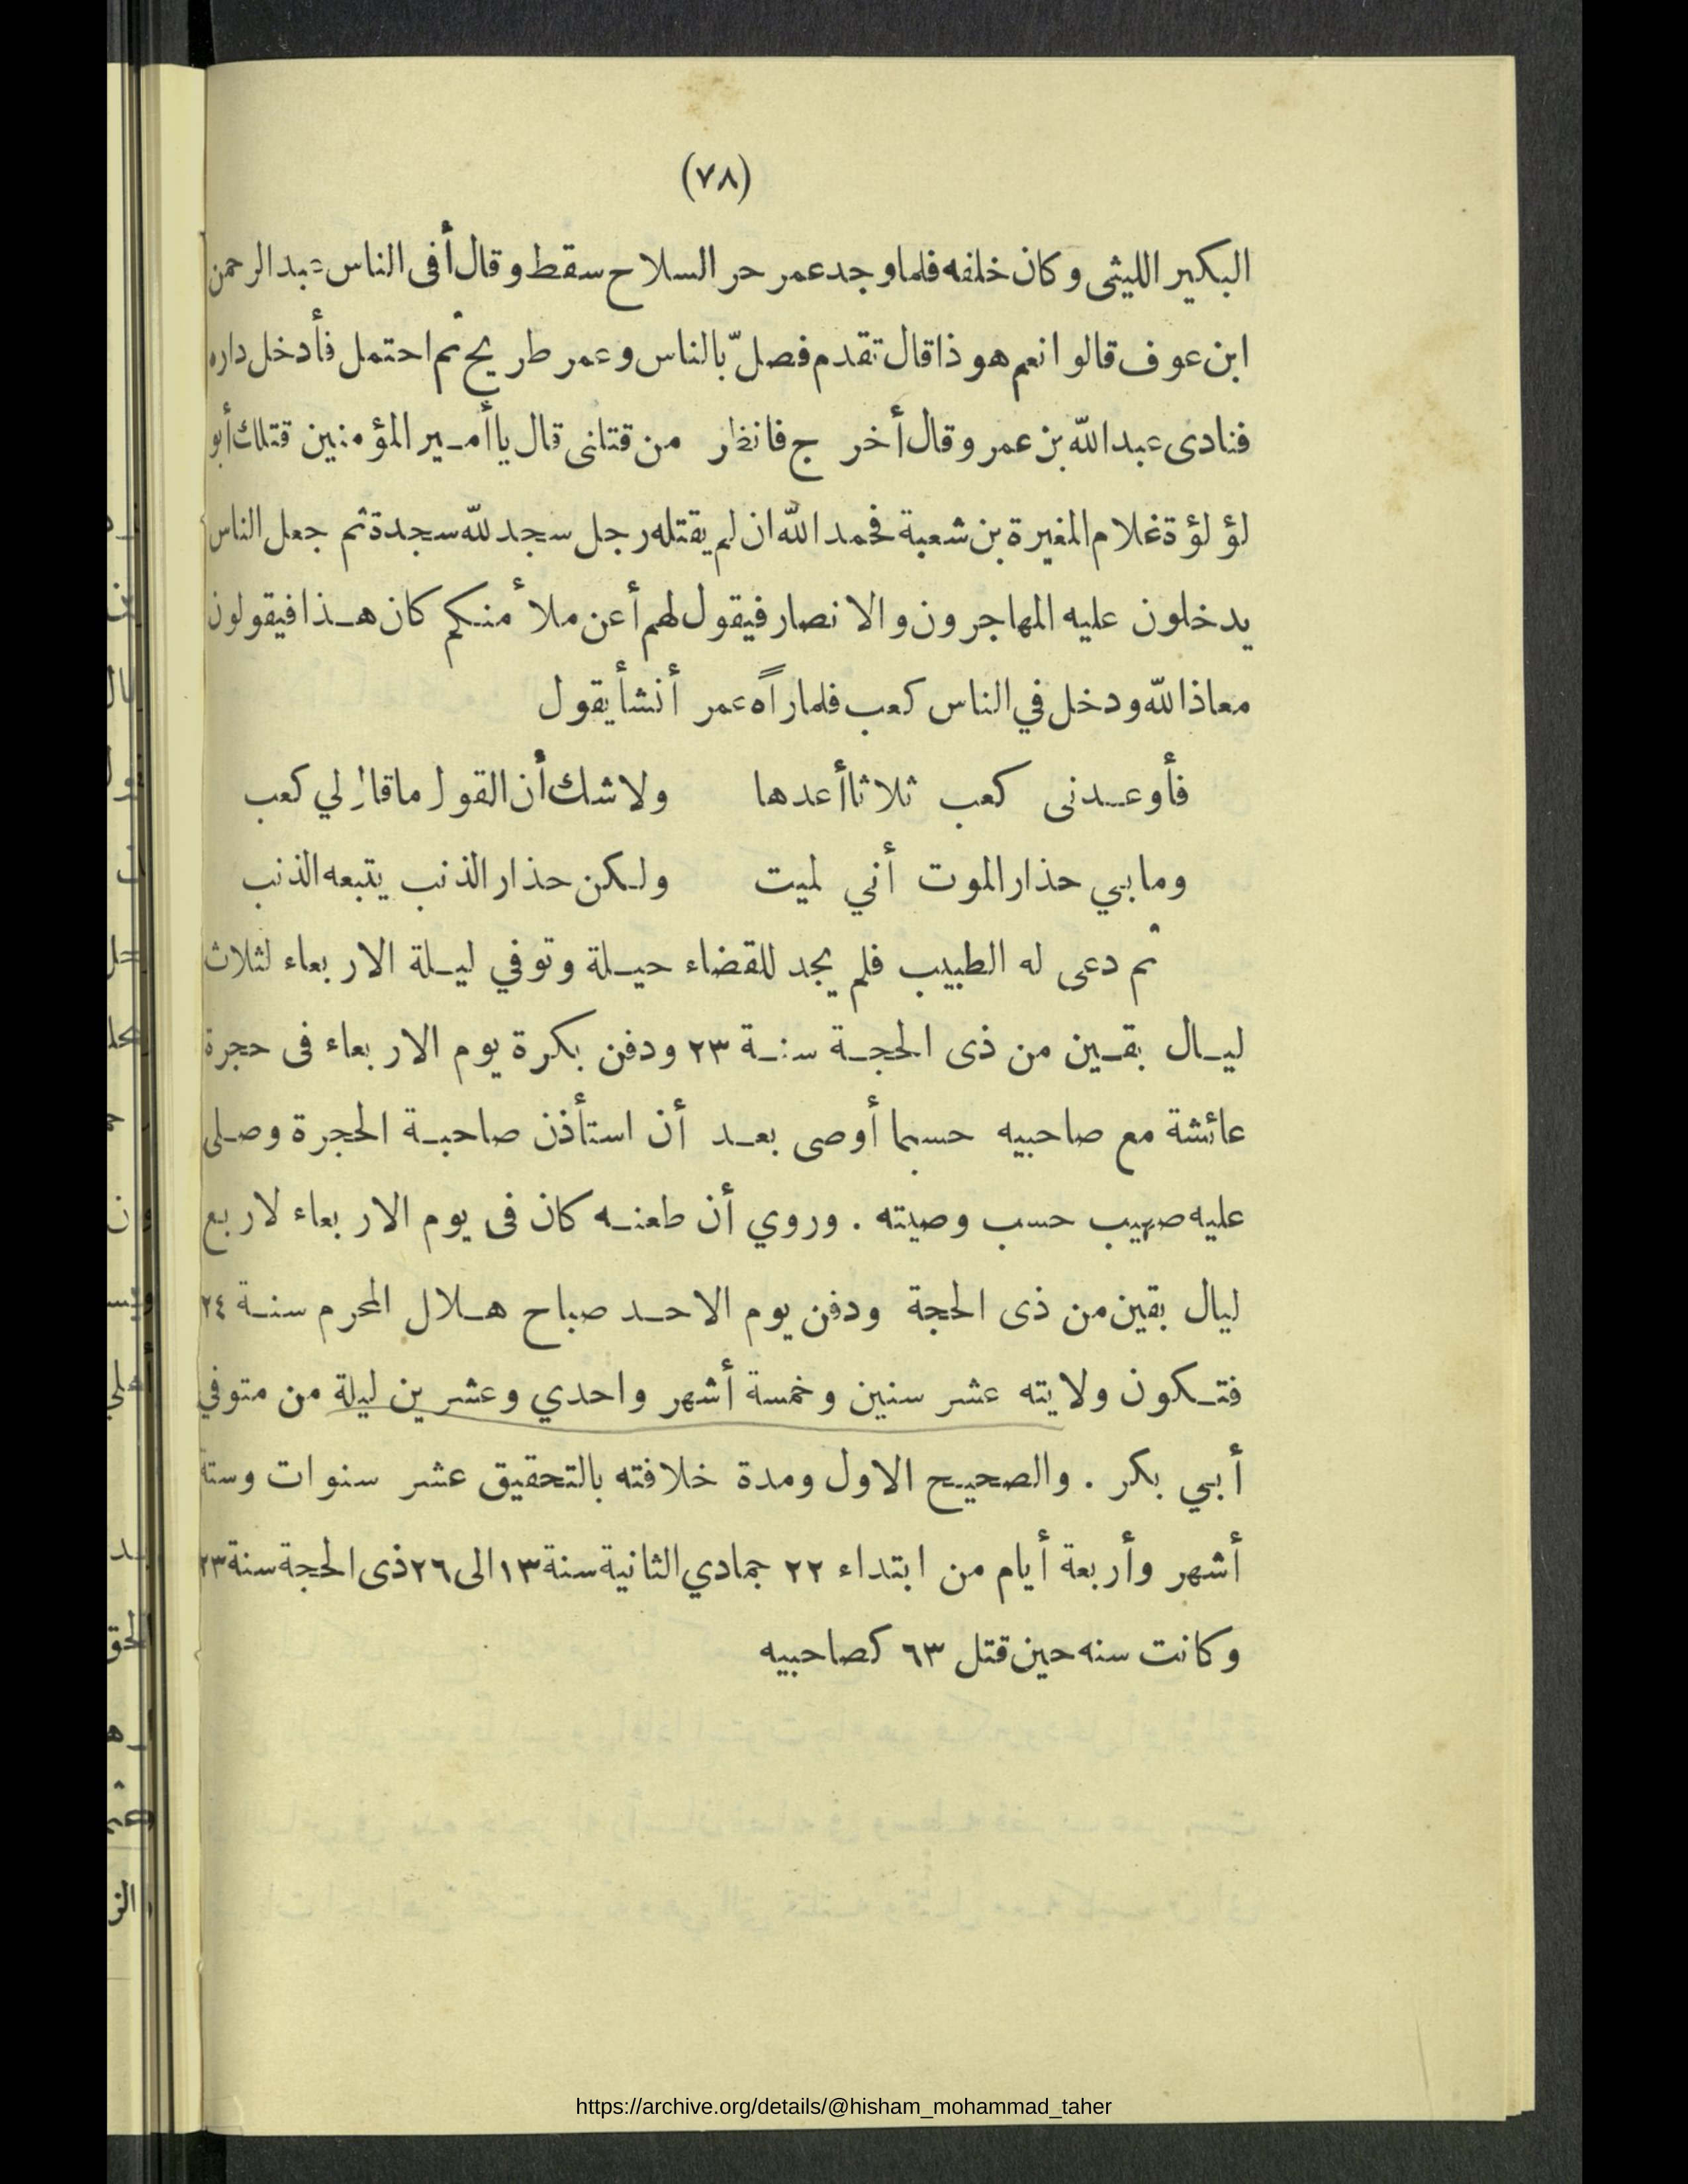 (٧٨)
البكير الليثى وكان خلفه فلما وجد عمر حر السلاح سقط وقال أفى الناس عبد الرحمن
ابن عوف قالوا نعم هو ذا قال تقدم فصلّ بالناس وعمر طريح ثم احتمل فأدخل داره
فنادى عبد الله بن عمر وقال أخرج فانظر من قتلنى قال يا أمير المؤمنين قتلك أبو
لؤلؤة غلام المغيرة بن شعبة فحمد الله ان لم يقتله رجل سجد لله سجدة ثم جعل الناس
يدخلون عليه المهاجرون والانصار فيقول لهم أعن ملأ منكم كان هذا فيقولون
معاذ الله ودخل في الناس كعب فلما رآه عمر أنشأ يقول
فأوعدنى كعب ثلاثا أعدها ولا شك أن القول ما قال لي كعب
وما بي حذار الموت أني لميت ولكن حذار الذنب يتبعه الذنب
ثم دعى له الطبيب فلم يجد للقضاء حيلة وتوفي ليلة الاربعاء لثلاث
ليال بقين من ذى الحجة سنة ٢٣ ودفن بكرة يوم الاربعاء فى حجرة
عائشة مع صاحبيه حسبما أوصى بعد أن استأذن صاحبة الحجرة وصلى
عليه صهيب حسب وصيته . وروي أن طعنه كان فى يوم الاربعاء لاربع
ليال بقين من ذى الحجة ودفن يوم الاحد صباح هلال المحرم سنة ٢٤
فتكون ولايته عشر سنين وخمسة أشهر واحدي وعشرين ليلة من متوفي
أبي بكر . والصحيح الاول ومدة خلافته بالتحقيق عشر سنوات وستة
أشهر وأربعة أيام من ابتداء ٢٢ جمادي الثانية سنة ١٣ الى ٢٦ ذى الحجة سنة ٢٣
وكانت سنه حين قتل ٦٣ كصاحبيه
https://archive.org/details/@hisham_mohammad_taher